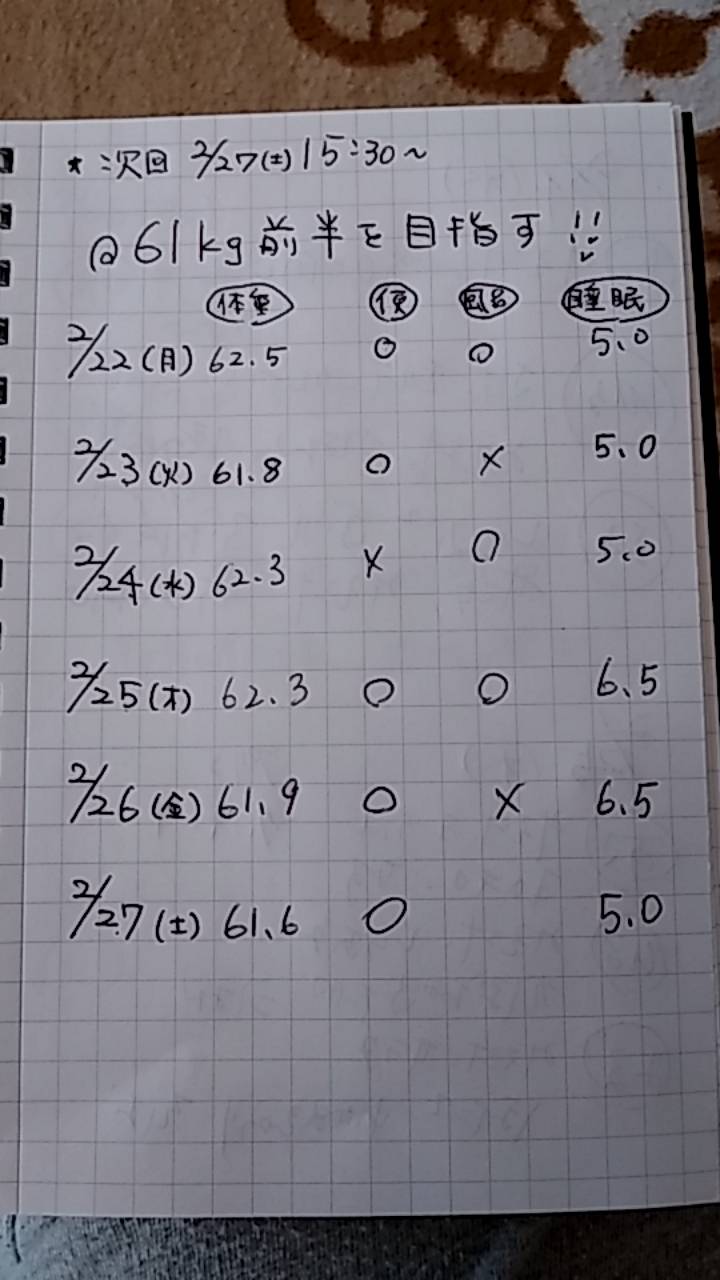 ★次回 2/27(土) 15:30～
@61kg前半を目指す!!
体重 便 風呂 睡眠
2/22(月) 62.5 ○ ○ 5.0
2/23(火) 61.8 ○ × 5.0
2/24(水) 62.3 × ○ 5.0
2/25(木) 62.3 ○ ○ 6.5
2/26(金) 61.9 ○ × 6.5
2/27(土) 61.6 ○ 5.0